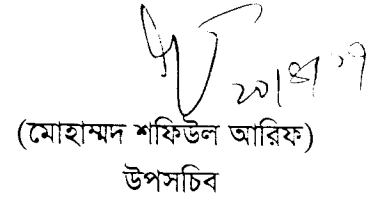 (মোহাম্মদ শফিউল আরিফ)
উপসচিব